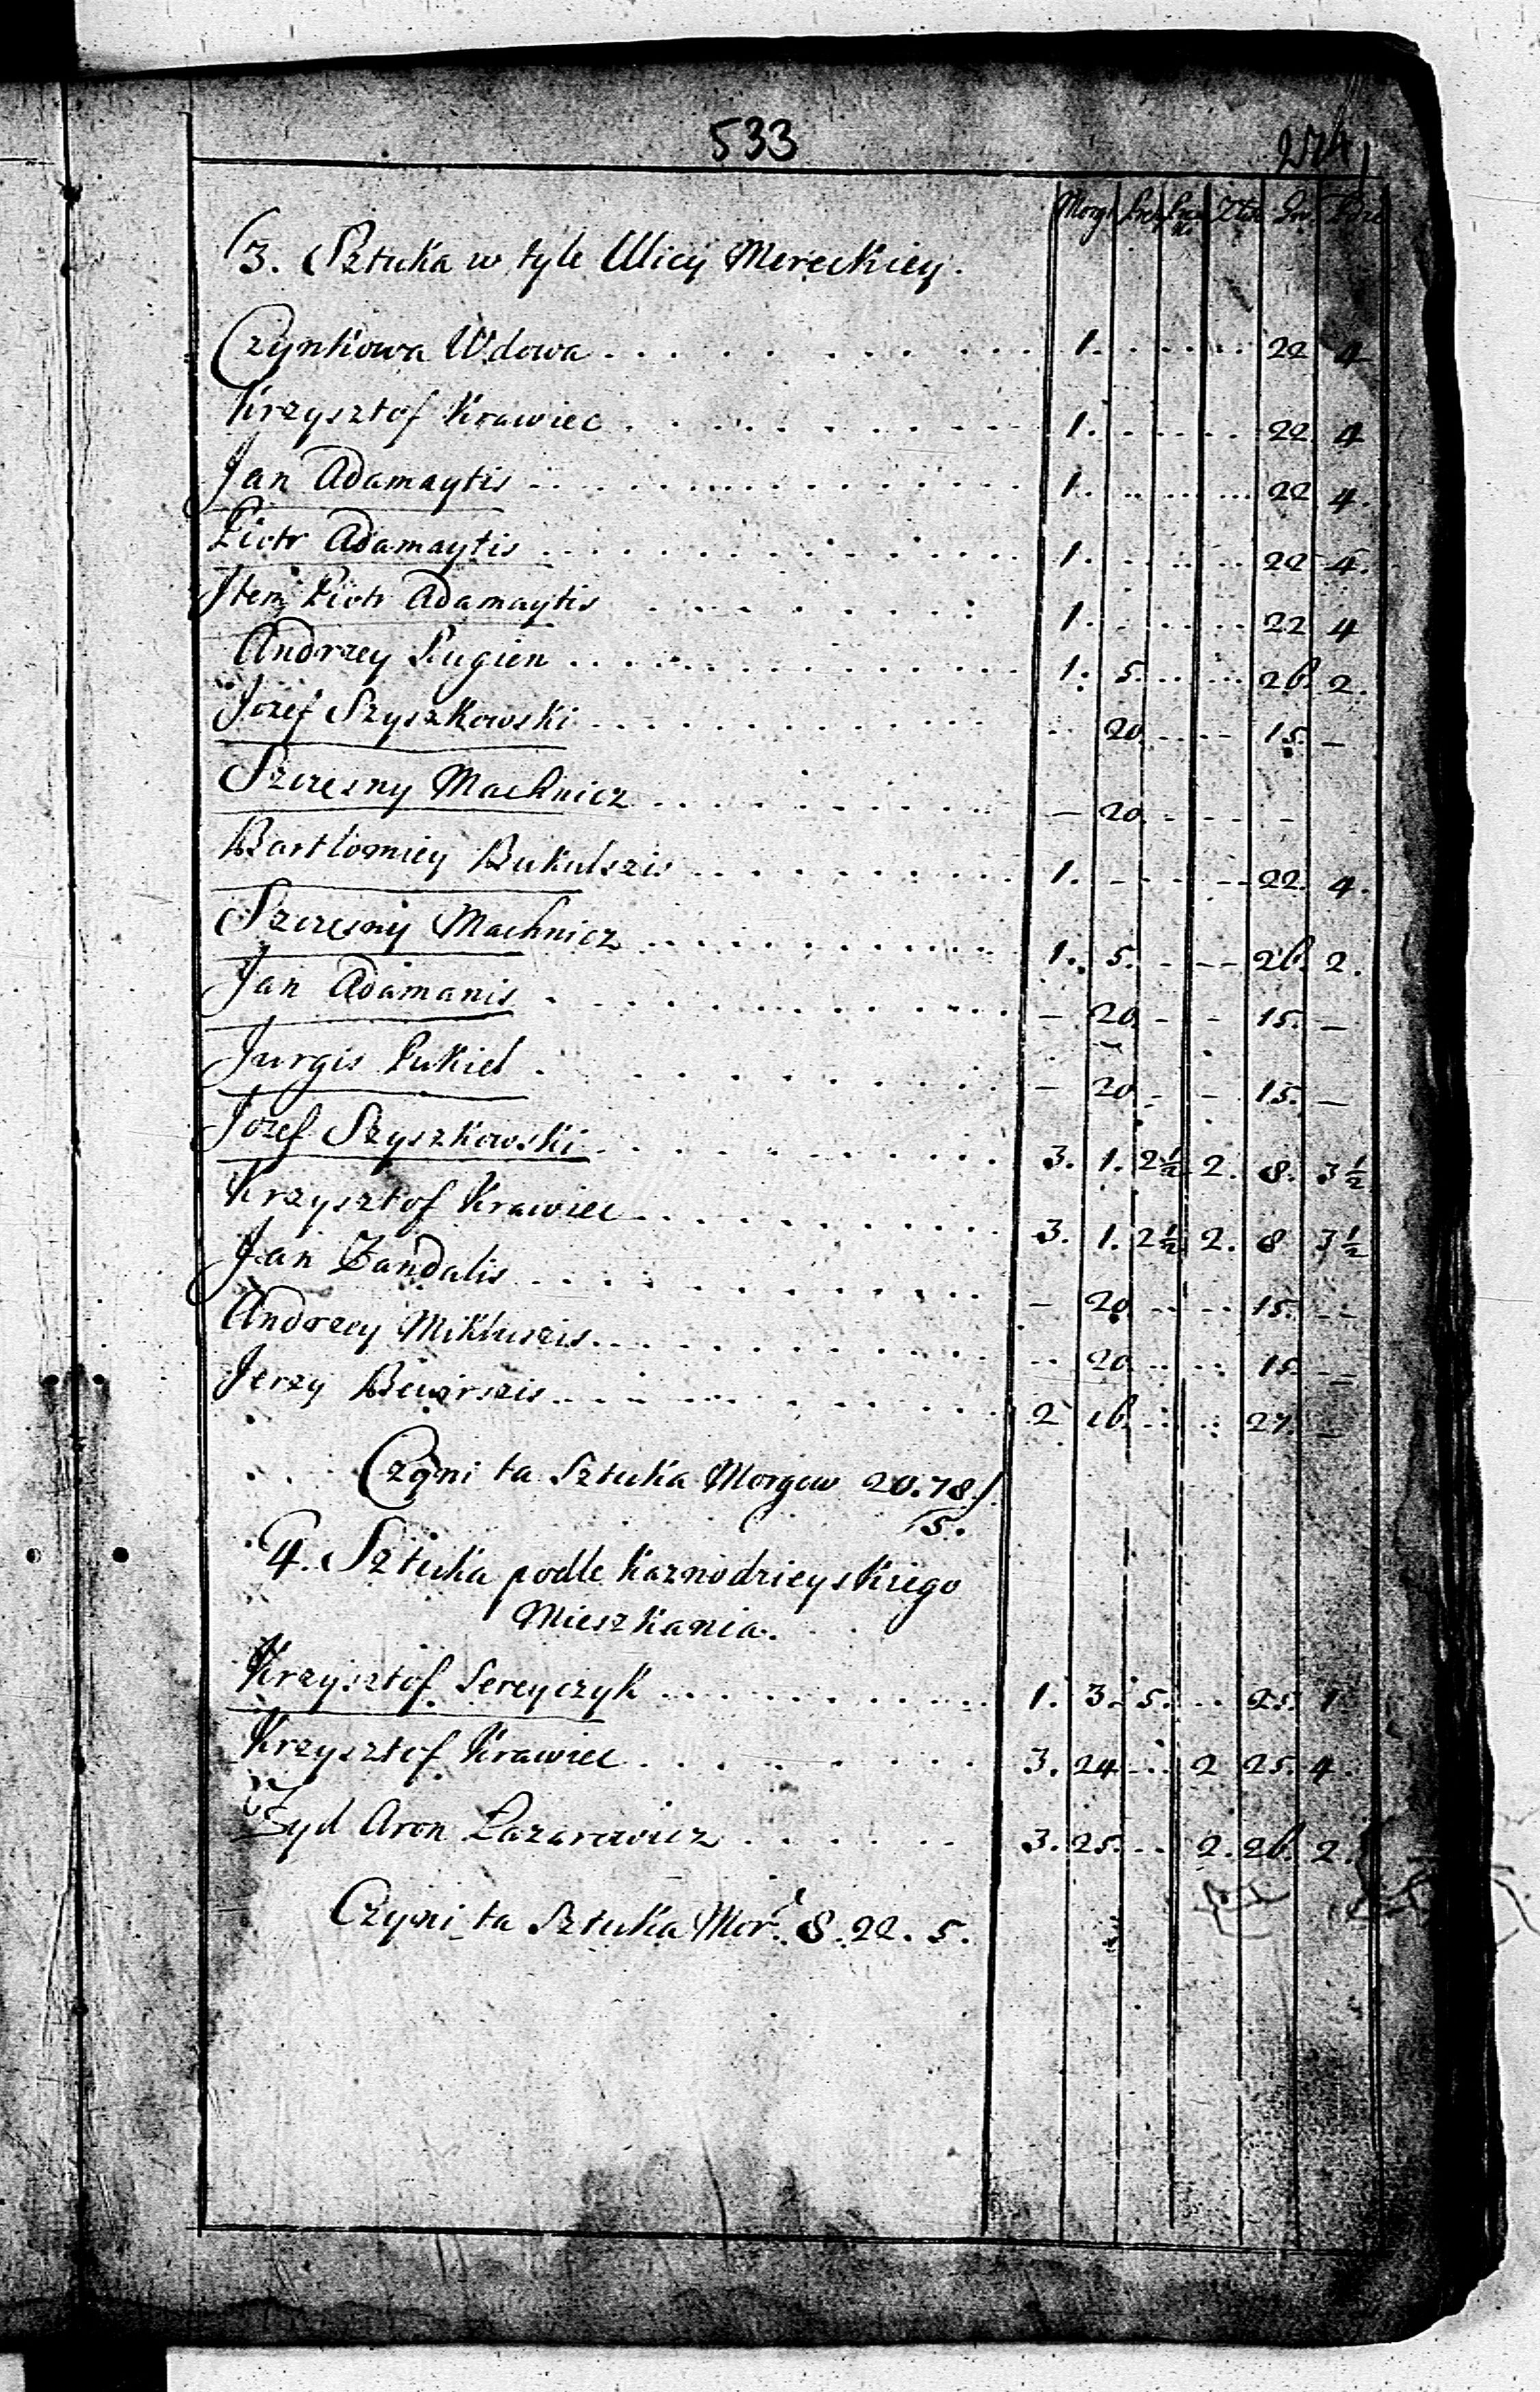 533
Morg Złot
3. Sztuka w tyle Ulicy Mereckiey.
Czynkowa Wdowa 1. 22 4
Krzysztof Krawiec 1. 22 4
Jan Adamaytis 1. 22 4.
Piotr Adamaytis 1. 22 4.
Item Piotr Adamaytis 1. 22 4
Andrzey Pugien 1. 5. 26. 2.
Jozef Szyszkowski 20 15. —
Szczęsny Machnicz — 20. -
Bartłomiey Bukulszis 1. 22. 4.
Szczęsny Machnicz 1. 5. 26. 2.
Jan Adamanis — 20. 15. —
Jurgis Pukiel — 20. 15. —
Jozef Szyszkowski 3. 1. 2½ 2. 8. 3½
Krzysztof Krawiec 3. 1. 2½ 2. 8 3½
Jan Żandalis — 20 15. —
Andrzey Mikluszis 20 15. —
Jerzy 2 16. 27. —
Czyni ta Sztuka Morgow 20. 78./
5.
4. Sztuka podle Kaznodzieyskiego
Mieszkania.
Krzysztof Sereyczyk 1. 3. 5. 25. 1.
Krzysztof Krawiec 3. 24 2 25. 4.
Żyd Aron Łazarowicz 3. 25. 2. 26. 2.
Czyni ta Sztuka Mor. 8. 22. 5.